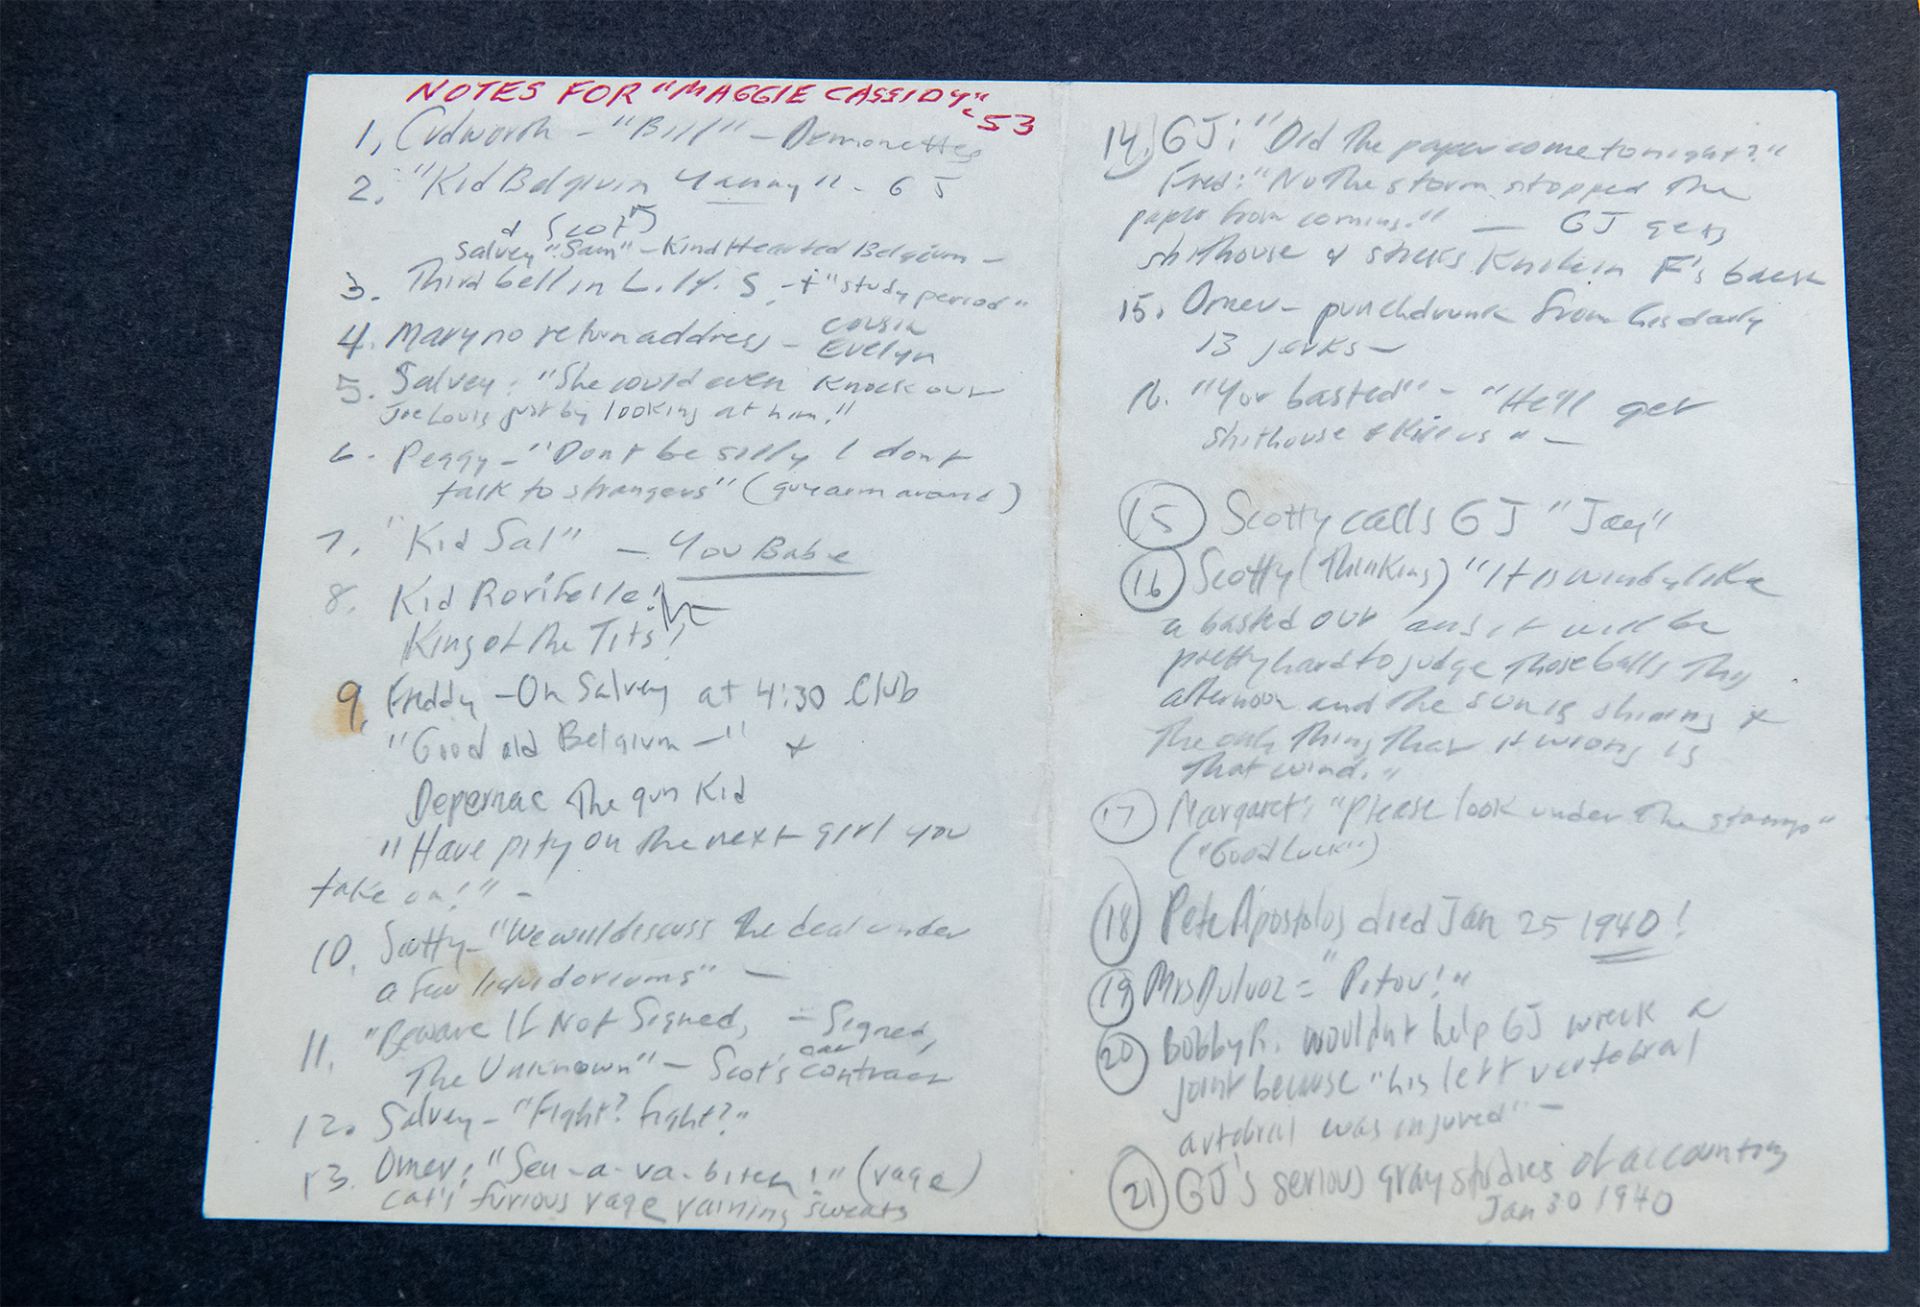 NOTES FOR "MAGGIE CASSIDY" '53
1, Cudworth - "Bill" - Demonettes
2. "Kid Belgium" - GJ
& Scot
Salvey "Sam" - Kind Hearted Belgium -
3. Third bell in L.H.S. - + "study period"
4. Mary no return address - cousin
Evelyn
5. Salvey: "She could even knock out
Joe Louis just by looking at him!"
6. Peggy - "Dont be silly I dont
talk to strangers" (guy arm around)
7. "Kid Sal" - You Babe
8. Kid
King of the Tits!
9. Freddy - On Salvey at 4:30 Club
"Good old Belgium -" +
Depernac The gun Kid
"Have pity on the next girl you
take on!" -
10. Scotty - "We will discuss the deal under
a few" -
11. "Beware If Not Signed, - Signed,
The Unknown" - Scot's contract
12. Salvey - "Fight? fight?"
13. Omer: "Sen-a-va-bitch!" (rage)
cat's furious rage raining sweats
14. GJ: "Did the paper come tonight?"
Fred: "No the storm stopped the
paper from coming." - GJ gets
shithouse & sticks Knife in F's back
15. Omer - punchdrunk from his daily
13 jerks -
16. "You basted" - "He'll get
shithouse & Kill us" -
15 Scotty calls GJ "Jay"
16 Scotty (Thinking) "It is windy like
a basted out and it will be
pretty hard to judge those balls this
afternoon and the sun is shining &
The only thing that is wrong is
that wind."
17 Margaret's "Please look under the stamp"
("Good Luck")
18 Pete Apostolos died Jan 25 1940!
19 Mrs Duluoz = "Pitou!"
20 Bobby R. wouldn't help GJ wreck a
joint because "his left vertebral
artebral was injured" -
21 GJ's serious gray studies of accounting
Jan 30 1940